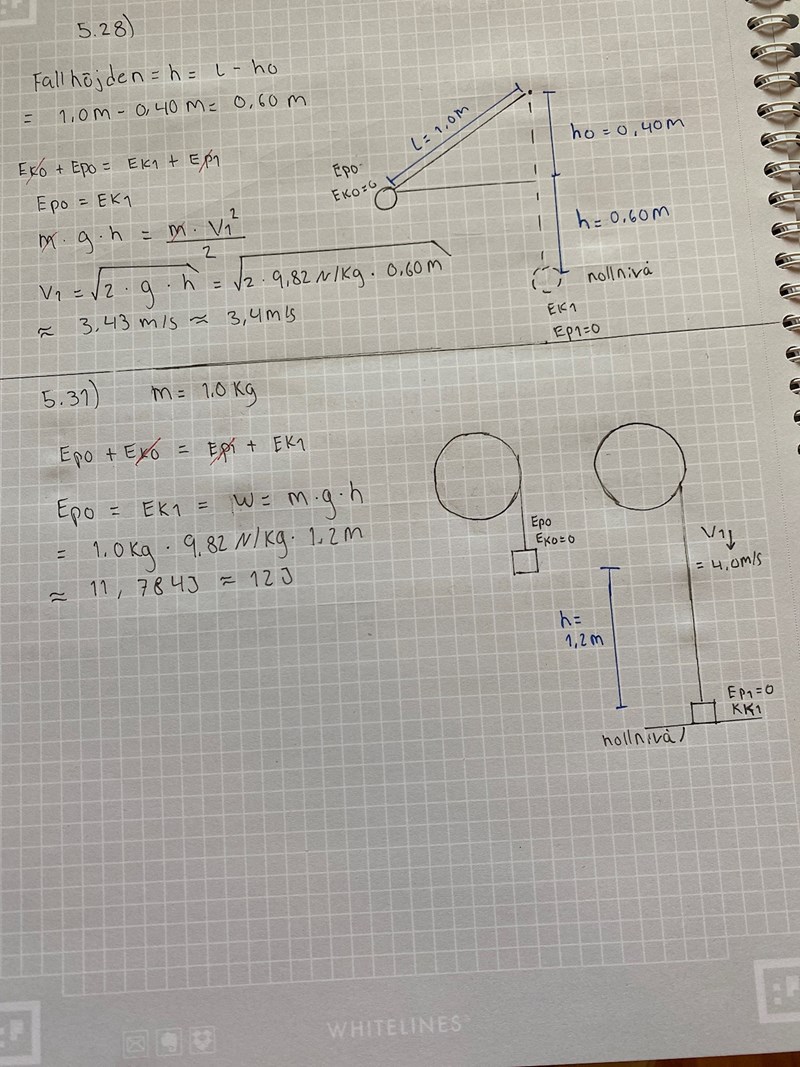 5.28)
Fallhöjden = h = l - h0
= 1,0m - 0,40m = 0,60m
EK0 + EP0 = EK1 + EP1
EP0 = EK1
m · g · h = m · V1² / 2
V1 = √2 · g · h = √2 · 9,82 N/kg · 0,60m
≈ 3,43 m/s ≈ 3,4m/s
l = 1,0m
EP0
EK0=0
h0 = 0,40m
h = 0,60m
nollnivå
EK1
EP1=0
5.31) m = 1,0 kg
EP0 + EK0 = EP1 + EK1
EP0 = EK1 = W = m·g·h
= 1,0kg · 9,82 N/kg · 1,2m
≈ 11,784J ≈ 12J
EP0
EK0=0
V1↓
= 4,0m/s
h=
1,2m
EP1=0
KK1
nollnivå
WHITELINES